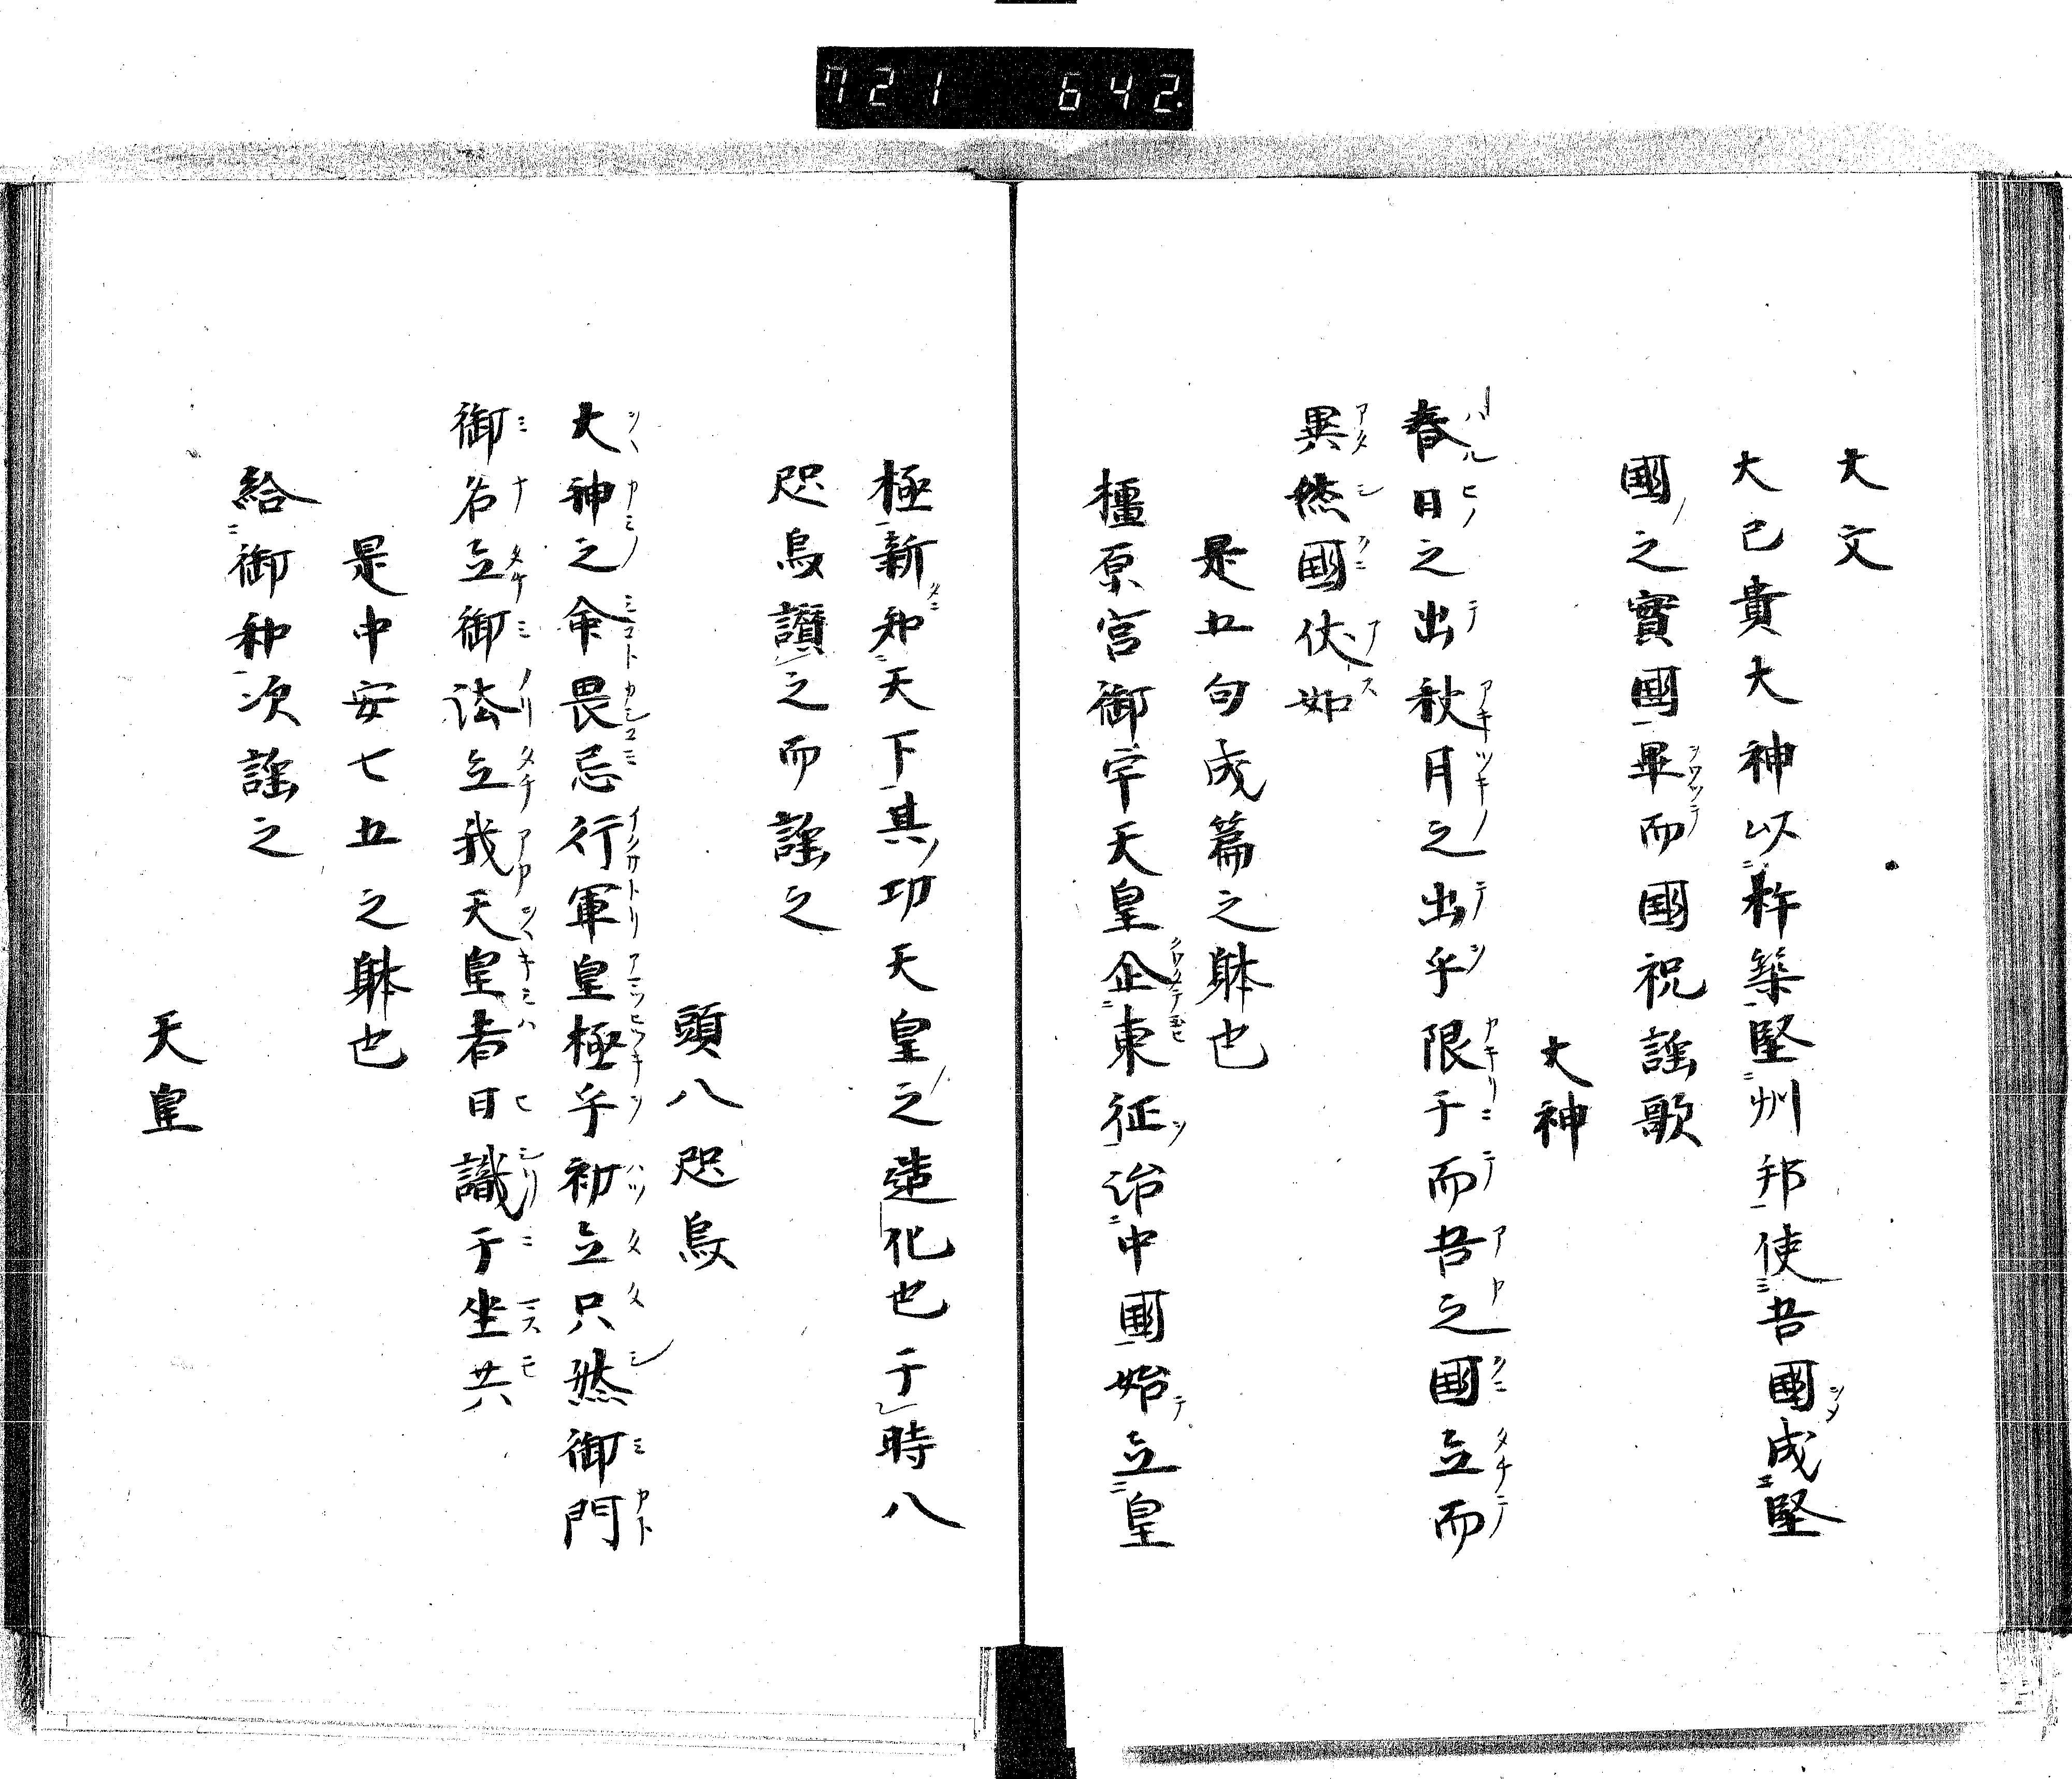 721 642.
大文
大己貴大神以杵築堅州邦使吾國成堅
國之實國畢而國祝謡歌
大神
春日之出秋月之出乎限于而吾之國立而
異然國伏如
是五句成篇之躰也
橿原宮御宇天皇企東征治中國始立皇
極新知天下其功天皇之造化也于時八
咫烏讃之而謡之
頭八咫烏
大神之命畏忌行軍皇極乎初立只然御門
御名立御法立我天皇者日識于坐共
是中安七五之躰也
給御和次謡之
天皇